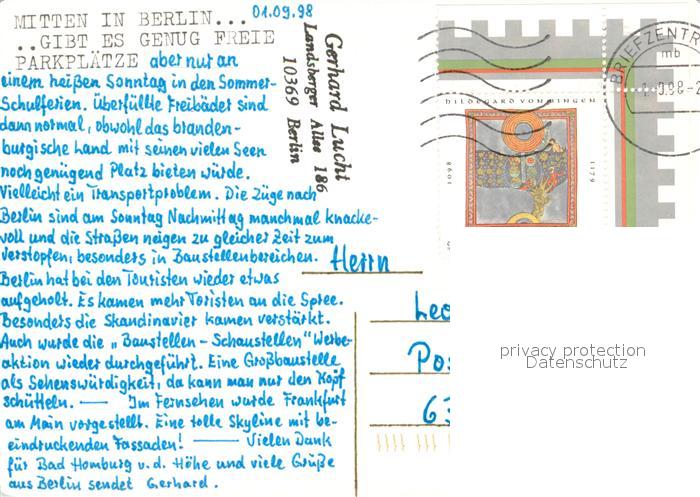 01.09.98
MITTEN IN BERLIN...
..GIBT ES GENUG FREIE
PARKPLÄTZE aber nur an
einem heißen Sonntag in den Sommer-
Schulferien. Überfüllte Freibäder sind
dann normal, obwohl das branden-
burgische Land mit seinen vielen Seen
noch genügend Platz bieten würde.
Vielleicht ein Transportproblem. Die Züge nach
Berlin sind am Sonntag Nachmittag manchmal knacke-
voll und die Straßen neigen zu gleicher Zeit zum
verstopfen, besonders in Baustellenbereichen.
Berlin hat bei den Touristen wieder etwas
aufgeholt. Es kamen mehr Toristen an die Spree.
Besonders die Skandinavier kamen verstärkt.
Auch wurde die „Baustellen - Schaustellen" Werbe-
aktion wieder durchgeführt. Eine Großbaustelle
als Sehenswürdigkeit, da kann man nur den Kopf
schütteln. — Im Fernsehen wurde Frankfurt
am Main vorgestellt. Eine tolle Skyline mit be-
eindruckenden Fassaden! — Vielen Dank
für Bad Homburg v. d. Höhe und viele Grüße
aus Berlin sendet Gerhard.
Gerhard Lucht
Landsberger Allee 186
10369 Berlin
HILDEGARD VON BINGEN
1098
1179
BRIEFZENTR
mb
Herrn
Leo
Pos
63
privacy protection
Datenschutz